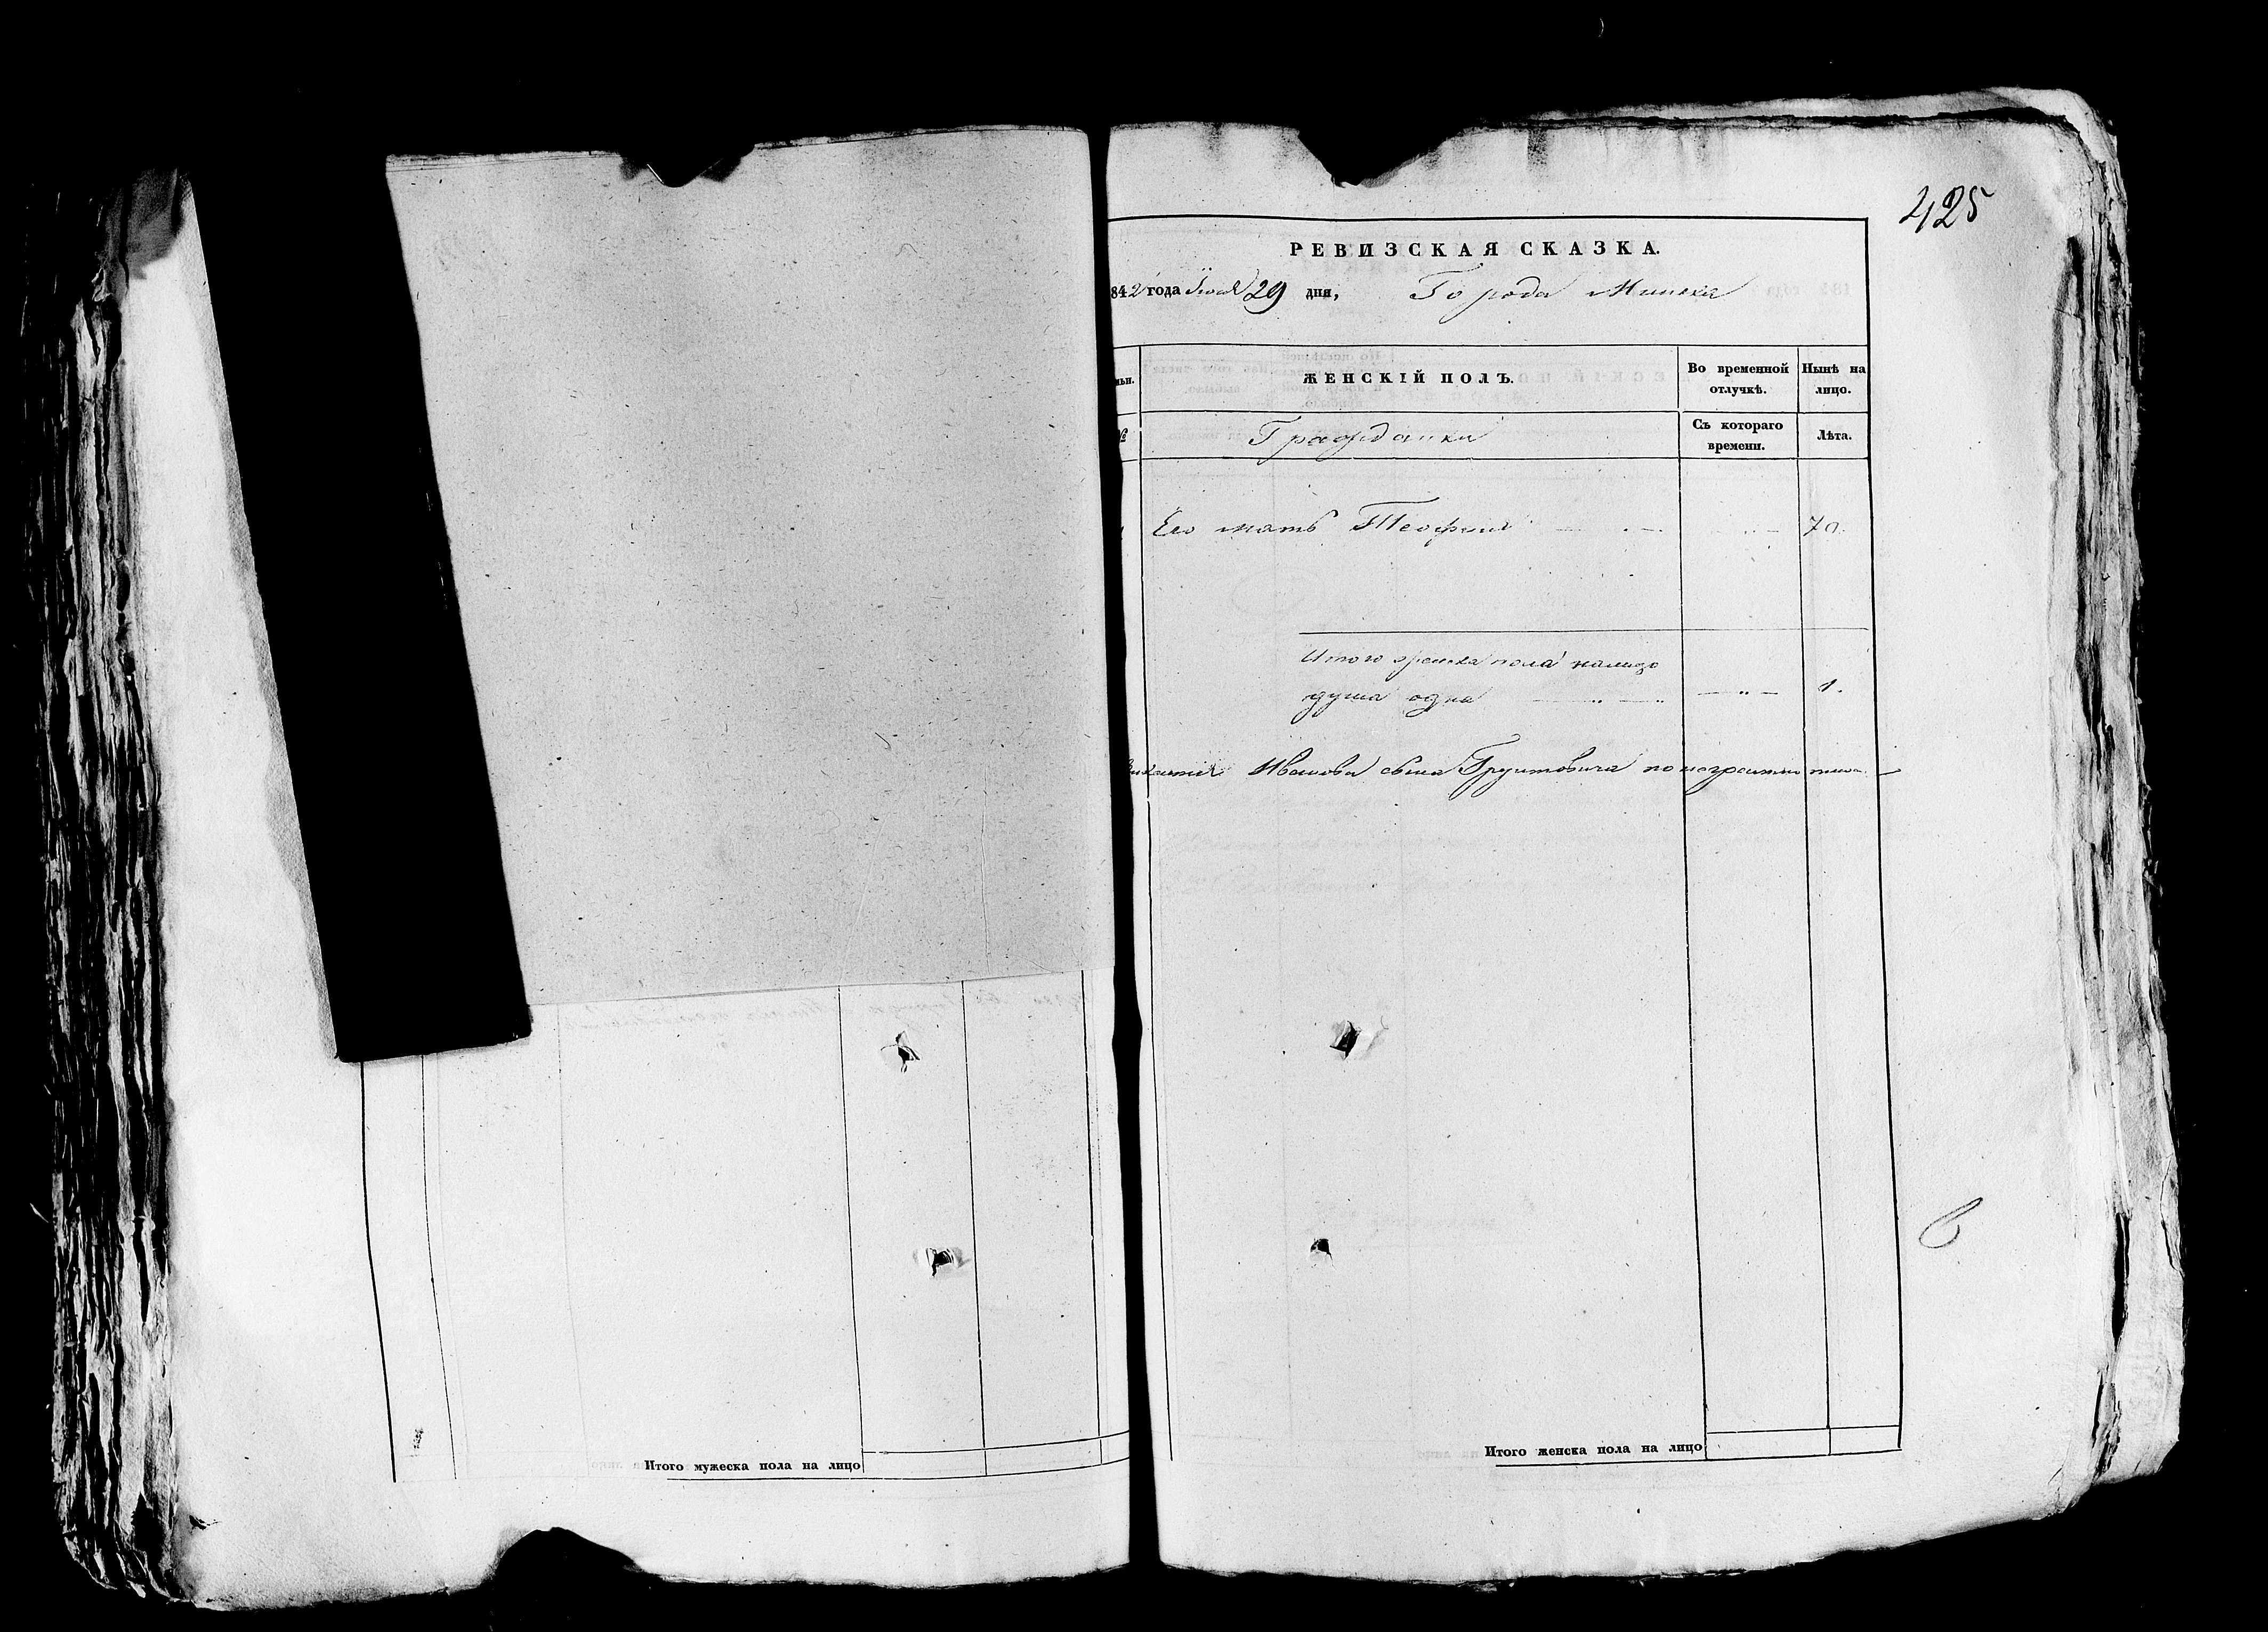 425
РЕВИЗСКАЯ СКАЗКА.
842 года 29 дня, Города Минска
ЖЕНСКІЙ ПОЛЪ.
Во временной отлучкѣ.
Нынѣ на лицо.
Гражданки
Съ котораго времени.
Лѣта.
Его мать Теофила 70.
Итого женска пола налицо
душа одна 1.
Иванова сына Грунтовича по неграмотн
Итого мужеска пола на лицо
Итого женска пола на лицо